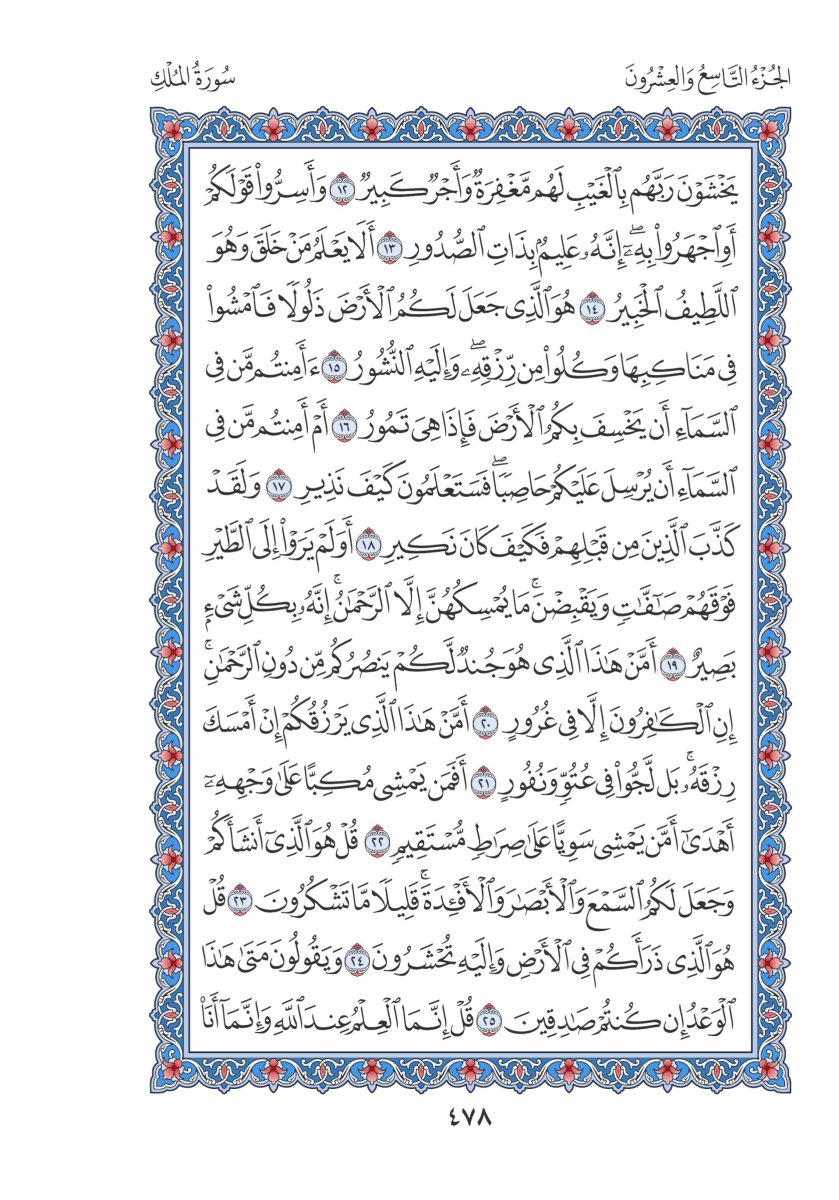 الجُزْءُ التَّاسِعُ وَالعِشْرُونَ
سُورَةُ المُلْكِ
يَخْشَوْنَ رَبَّهُم بِٱلْغَيْبِ لَهُم مَّغْفِرَةٌ وَأَجْرٌ كَبِيرٌ ١٢ وَأَسِرُّوا۟ قَوْلَكُمْ
أَوِ ٱجْهَرُوا۟ بِهِۦٓۖ إِنَّهُۥ عَلِيمٌۢ بِذَاتِ ٱلصُّدُورِ ١٣ أَلَا يَعْلَمُ مَنْ خَلَقَ وَهُوَ
ٱللَّطِيفُ ٱلْخَبِيرُ ١٤ هُوَ ٱلَّذِى جَعَلَ لَكُمُ ٱلْأَرْضَ ذَلُولًا فَٱمْشُوا۟
فِى مَنَاكِبِهَا وَكُلُوا۟ مِن رِّزْقِهِۦۖ وَإِلَيْهِ ٱلنُّشُورُ ١٥ ءَأَمِنتُم مَّن فِى
ٱلسَّمَآءِ أَن يَخْسِفَ بِكُمُ ٱلْأَرْضَ فَإِذَا هِىَ تَمُورُ ١٦ أَمْ أَمِنتُم مَّن فِى
ٱلسَّمَآءِ أَن يُرْسِلَ عَلَيْكُمْ حَاصِبًاۖ فَسَتَعْلَمُونَ كَيْفَ نَذِيرِ ١٧ وَلَقَدْ
كَذَّبَ ٱلَّذِينَ مِن قَبْلِهِمْ فَكَيْفَ كَانَ نَكِيرِ ١٨ أَوَلَمْ يَرَوْا۟ إِلَى ٱلطَّيْرِ
فَوْقَهُمْ صَٰٓفَّٰتٍ وَيَقْبِضْنَۚ مَا يُمْسِكُهُنَّ إِلَّا ٱلرَّحْمَٰنُۚ إِنَّهُۥ بِكُلِّ شَىْءٍۭ
بَصِيرٌ ١٩ أَمَّنْ هَٰذَا ٱلَّذِى هُوَ جُندٌ لَّكُمْ يَنصُرُكُم مِّن دُونِ ٱلرَّحْمَٰنِۚ
إِنِ ٱلْكَٰفِرُونَ إِلَّا فِى غُرُورٍ ٢٠ أَمَّنْ هَٰذَا ٱلَّذِى يَرْزُقُكُمْ إِنْ أَمْسَكَ
رِزْقَهُۥۚ بَل لَّجُّوا۟ فِى عُتُوٍّ وَنُفُورٍ ٢١ أَفَمَن يَمْشِى مُكِبًّا عَلَىٰ وَجْهِهِۦٓ
أَهْدَىٰٓ أَمَّن يَمْشِى سَوِيًّا عَلَىٰ صِرَٰطٍ مُّسْتَقِيمٍ ٢٢ قُلْ هُوَ ٱلَّذِىٓ أَنشَأَكُمْ
وَجَعَلَ لَكُمُ ٱلسَّمْعَ وَٱلْأَبْصَٰرَ وَٱلْأَفْـِٔدَةَۚ قَلِيلًا مَّا تَشْكُرُونَ ٢٣ قُلْ
هُوَ ٱلَّذِى ذَرَأَكُمْ فِى ٱلْأَرْضِ وَإِلَيْهِ تُحْشَرُونَ ٢٤ وَيَقُولُونَ مَتَىٰ هَٰذَا
ٱلْوَعْدُ إِن كُنتُمْ صَٰدِقِينَ ٢٥ قُلْ إِنَّمَا ٱلْعِلْمُ عِندَ ٱللَّهِ وَإِنَّمَآ أَنَا۠
٤٧٨